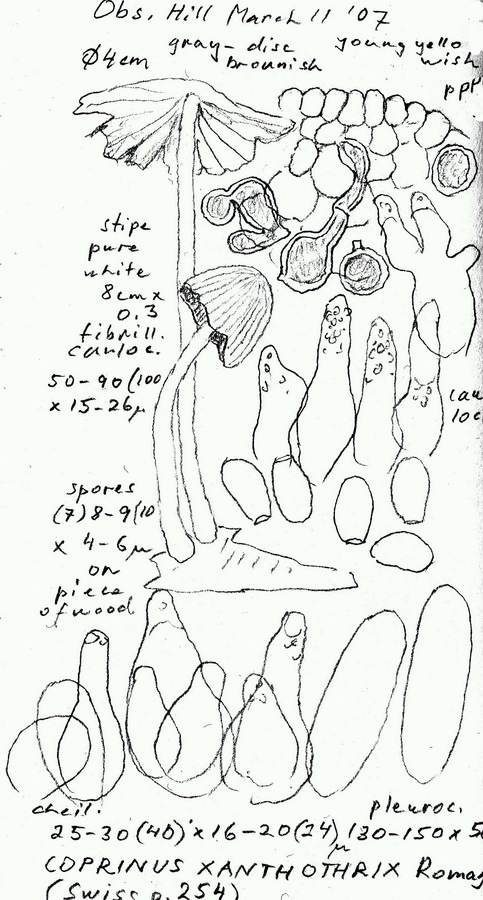 Obs. Hill March 11 '07
Ø4cm gray-disc brounish
young yello wish
ppt
stipe
pure
white
8cm x
0.3
fibrill.
cauloc.
50-90(100
x 15-26µ
cau
loc
spores
(7)8-9(10
x 4-6µ
on
piece
of wood
cheil.
pleuroc.
25-30(40) x 16-20(24)µ
130-150 x 5
COPRINUS XANTHOTHRIX Romag
(Swiss p. 254)